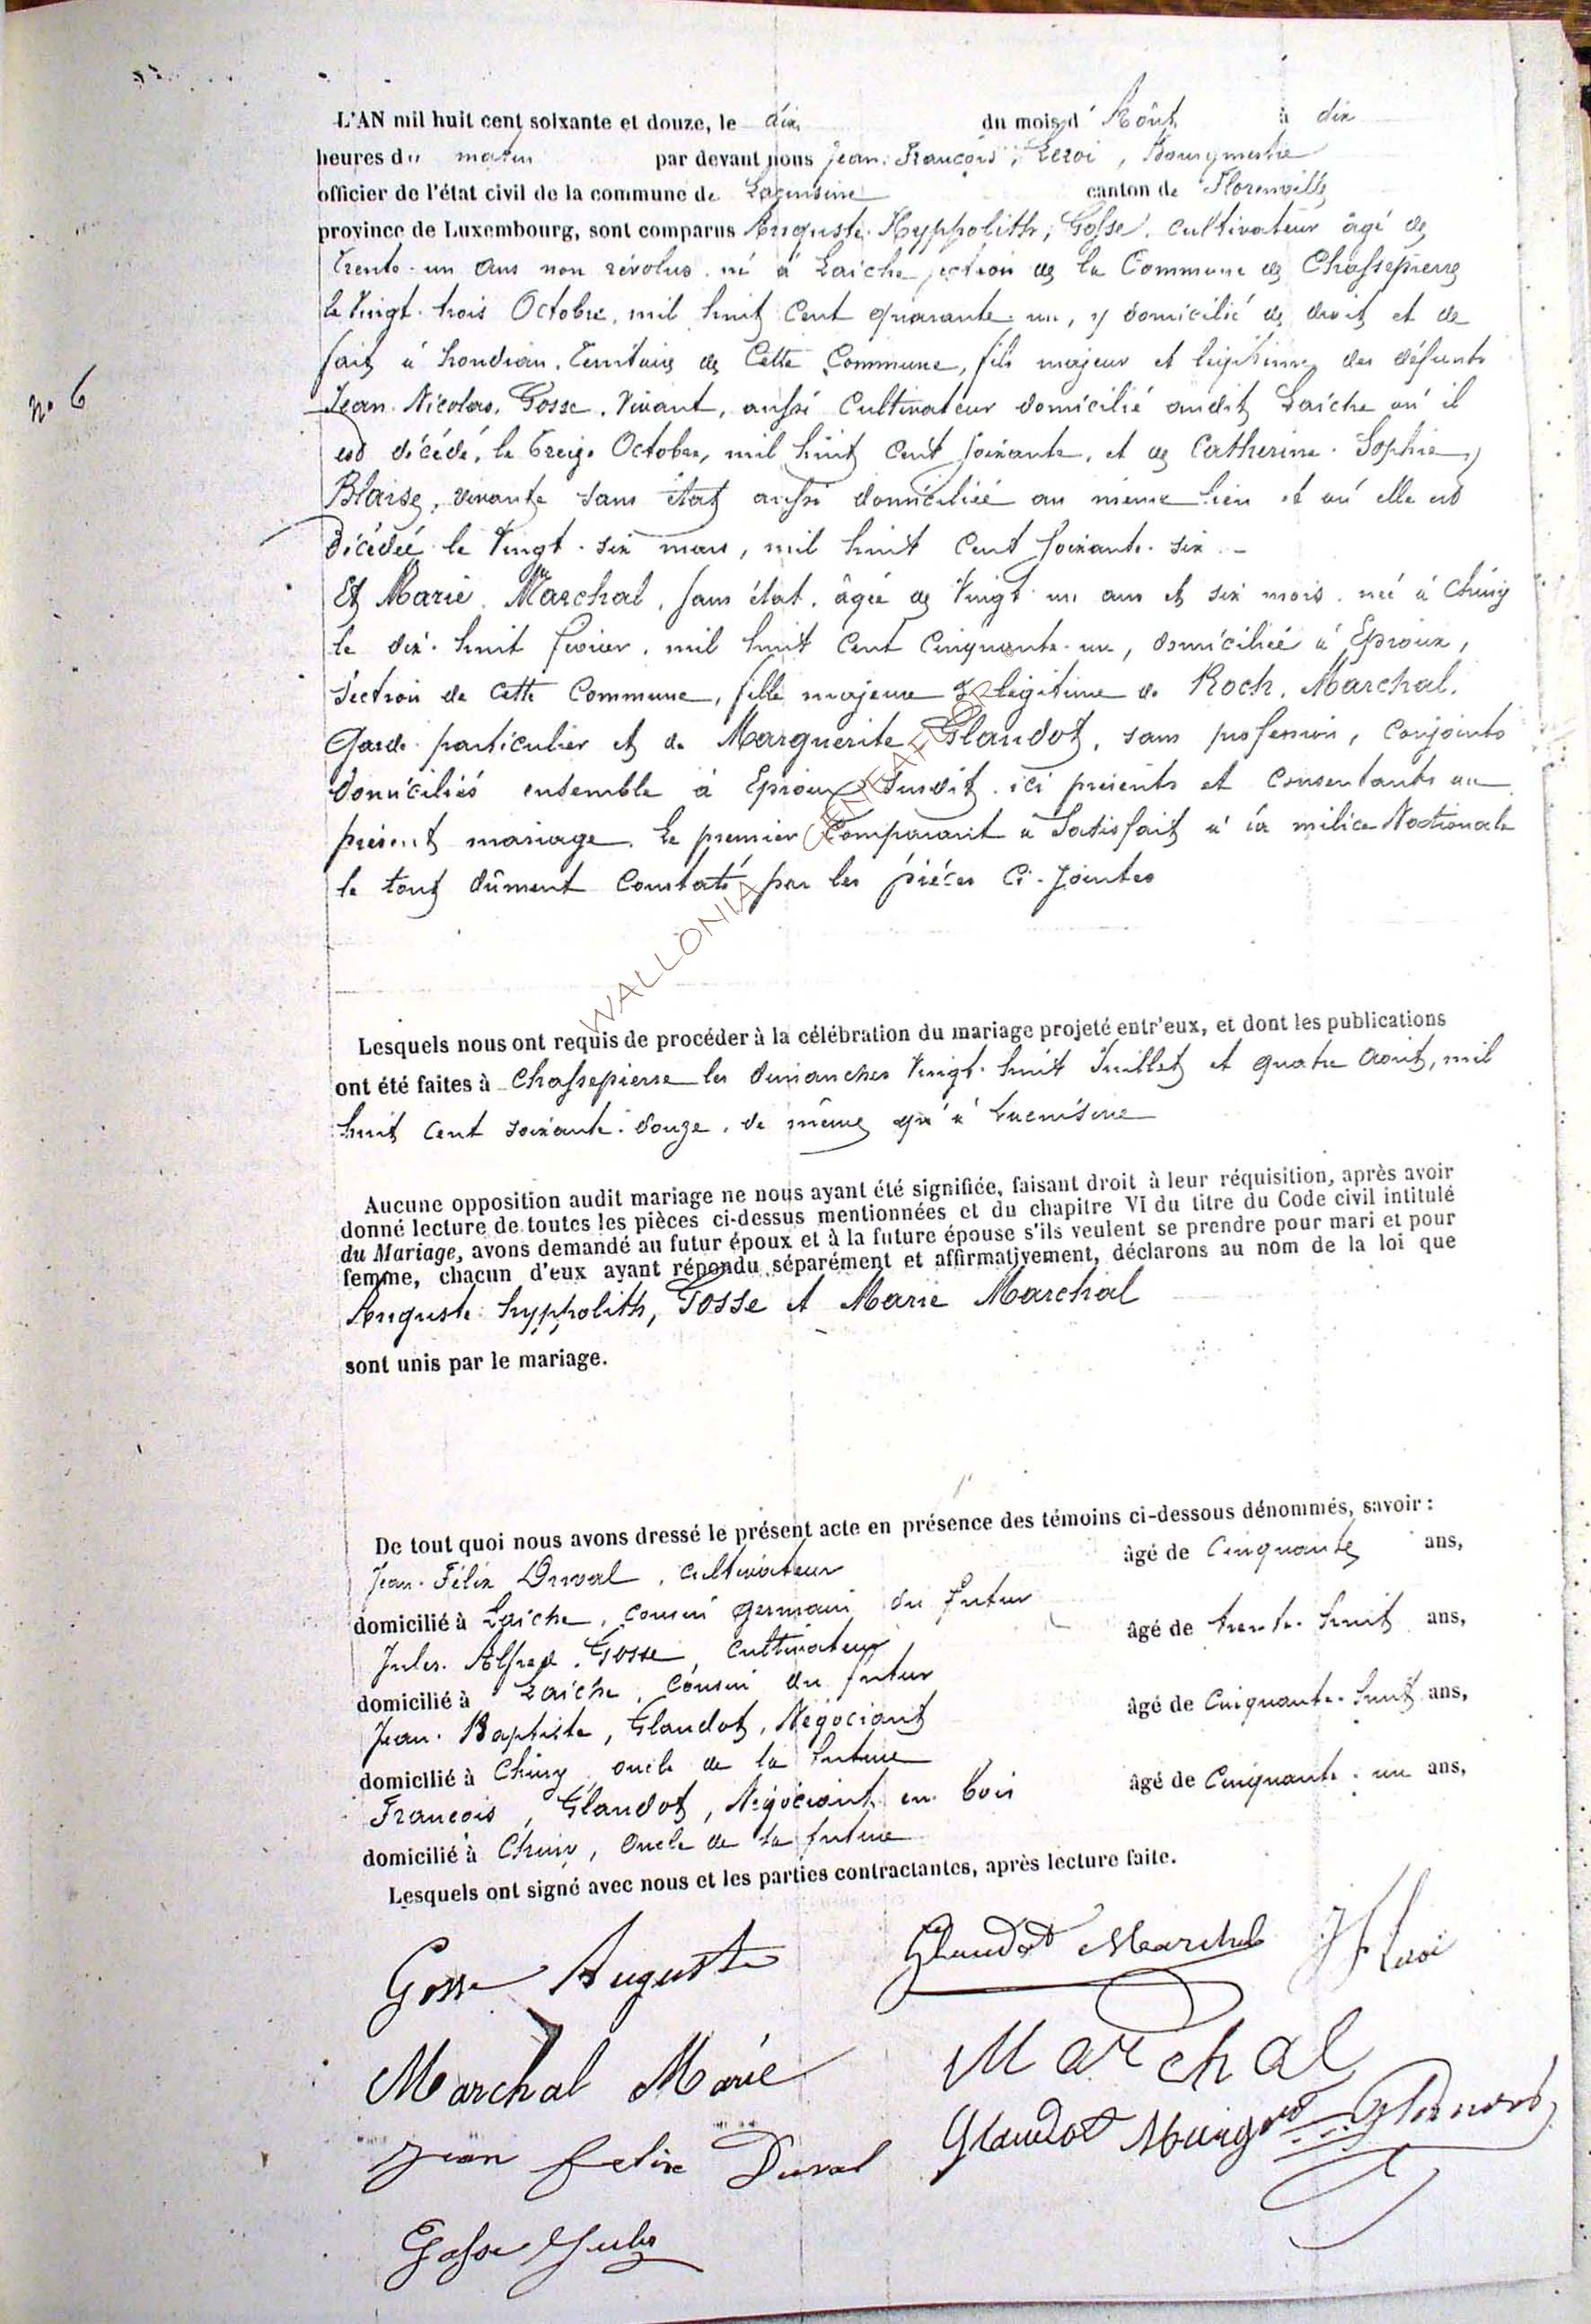 L'AN mil huit cent soixante et douze, le dix du mois d' Aôut à dix
heures du matin par devant nous Jean. François, Leroi, Bourgmestre
officier de l'état civil de la commune de Lacuisine canton de Florenville
province de Luxembourg, sont comparus Auguste. Hyppolith, Gosse, cultivateur âgé de
Trente. un ans non révolus. né à Laiche section de la Commune de Chassepierre
le Vingt. trois Octobre, mil huit Cent quarante. un, y domicilié de droit et de
fait à Territoire de Cette Commune, fils majeur et légitime des défunts
Jean. Nicolas. Gosse. Vivant, aussi Cultivateur domicilié audit Laiche où il
est décédé, le Treize Octobre, mil huit Cent soixante, et de Catherine. Sophie
Blaise, vivante sans état aussi domiciliée au même lieu et où elle est
Décédée le Vingt. six mars, mil huit Cent soixante. six. –
Et Marie. Marchal. sans état. âgée de Vingt un ans et six mois. née à Chiny
le dix. huit fevrier. mil huit Cent Cinquante. un, domiciliée à Epioux,
Section de Cette Commune, fille majeure & légitime de Roch. Marchal.
Garde particulier et de Marguerite Glaudot, sans profession, Conjoints
domiciliés ensemble à Epioux susdit. ici présents et Consentants au
présent mariage. Le premier Comparant a Satisfait à la milice Nationale
le tout dûment Constaté par les pièces Ci-Jointes
N° 6
WALLONIA GENEAFLOR
Lesquels nous ont requis de procéder à la célébration du mariage projeté entr'eux, et dont les publications
ont été faites à Chassepierre les dimanches Vingt. huit Juillet et quatre Aout, mil
huit Cent soixante. douze, de même qu'à Lacuisine
Aucune opposition audit mariage ne nous ayant été signifiée, faisant droit à leur réquisition, après avoir
donné lecture de toutes les pièces ci-dessus mentionnées et du chapitre VI du titre du Code civil intitulé
du Mariage, avons demandé au futur époux et à la future épouse s'ils veulent se prendre pour mari et pour
femme, chacun d'eux ayant répondu séparément et affirmativement, déclarons au nom de la loi que
Auguste hyppolith, Gosse et Marie Marchal
sont unis par le mariage.
De tout quoi nous avons dressé le présent acte en présence des témoins ci-dessous dénommés, savoir :
Jean. Félix Duval, Cultivateur âgé de Cinquante ans,
domicilié à Laiche, cousin germain du futur
Jules. Alfred. Gosse, Cultivateur, âgé de trente. huit ans,
domicilié à Laiche, Cousin du futur
Jean. Baptiste, Glaudot, Négociant âgé de Cinquante. huit ans,
domicilié à Chiny, oncle de la future
François, Glaudot, Négociant en bois âgé de Cinquante. un ans,
domicilié à Chiny, Oncle de la future
Lesquels ont signé avec nous et les parties contractantes, après lecture faite.
Gosse Auguste Glaudot Marchal JF Leroi
Marchal Marie Marchal
Jean felix Duval Glaudot
Gosse Jules